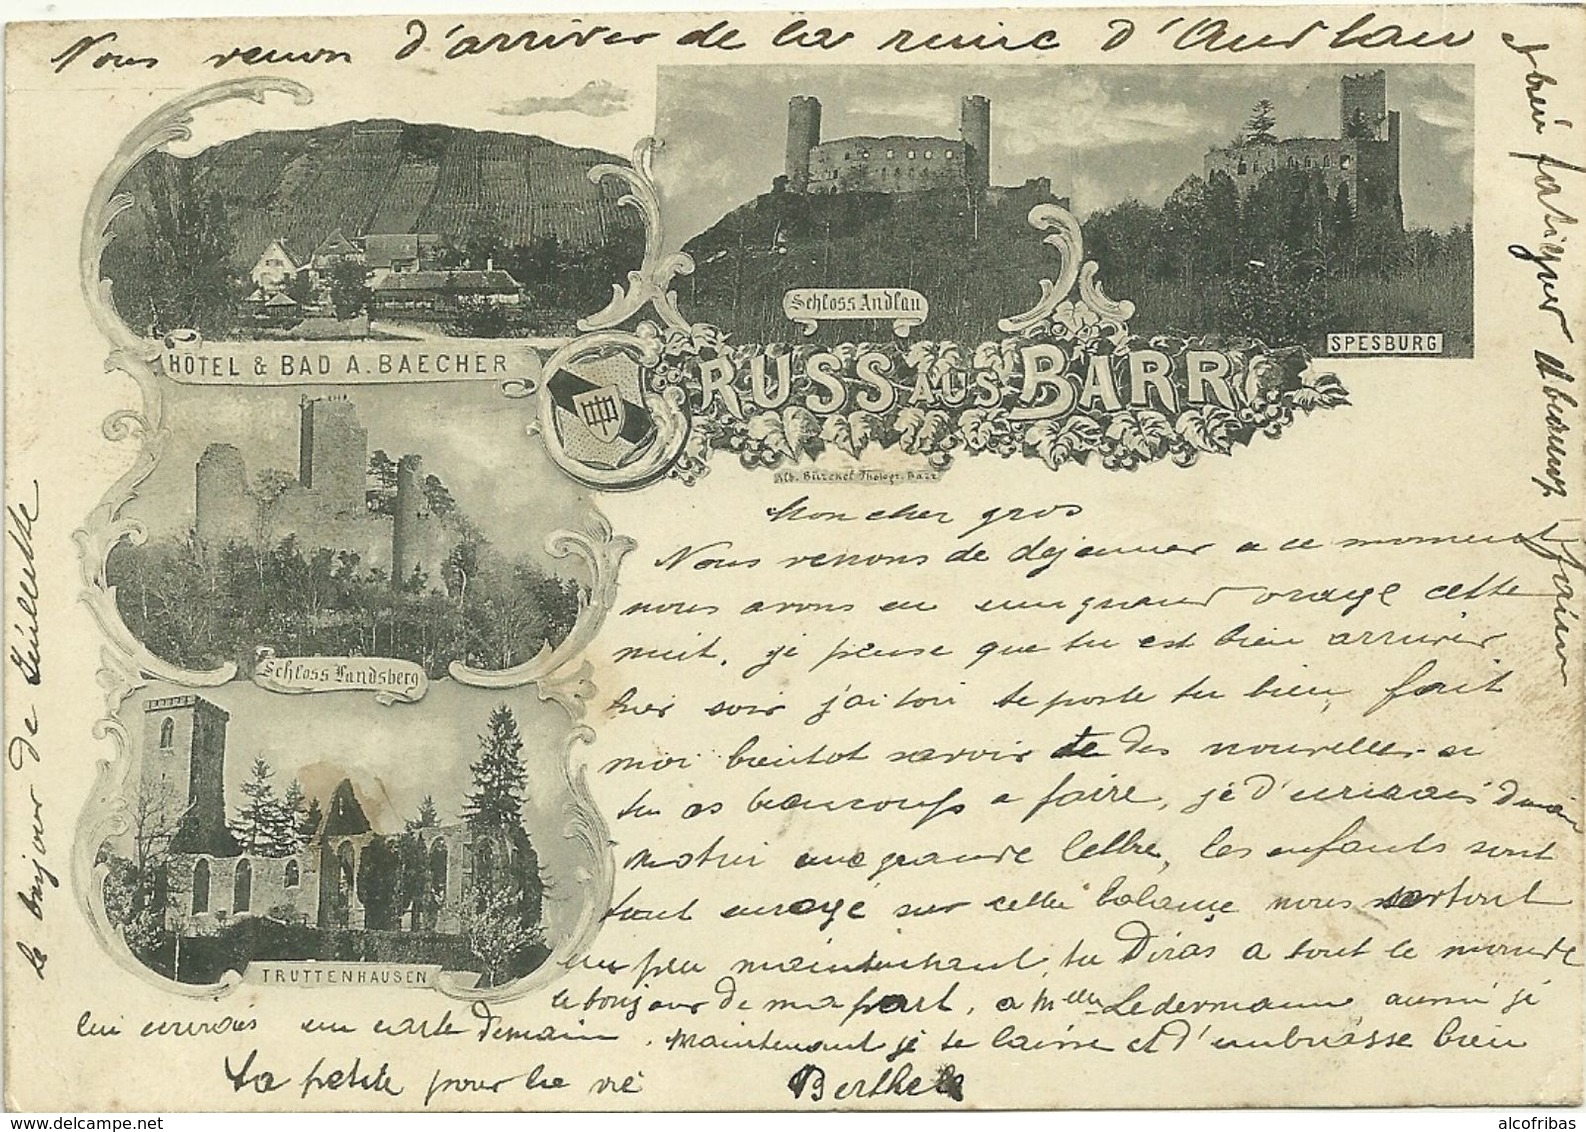 Nous venon d'arriver de la ruine d'Andlau et
bien fatiguer
Schloss Andlau
SPESBURG
HÔTEL & BAD A. BAECHER
GRUSS AUS BARR
Alb. Bürckel Photogr. Barr
Schloss Landsberg
TRUTTENHAUSEN
Mon cher gros
Nous venons de dejeuner a ce moment
nous avons eu un grand orage cette
nuit, je pense que tu est bien arriver
hier soir te porte tu bien, fait
moi bientot savoir de des nouvelles si
tu as beaucoup a faire, je t'ecrirais
une grande lettre, les enfants sont
tout sur cette nous sortont
un peu maintenant, tu Diras a tout le monde
le bonjour de ma part, a Melle Ledermann, aussi je
lui ecrirais un carte Demain. Maintenant je te laisse et t'embrasse bien
Ta petite pour la vie Berthe
le bonjour de